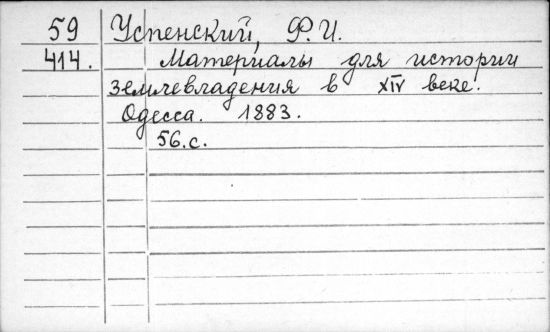 59 Успенский, Ф.И.
414. Материалы для истории
землевладения в XIV веке.
Одесса. 1883.
56.с.